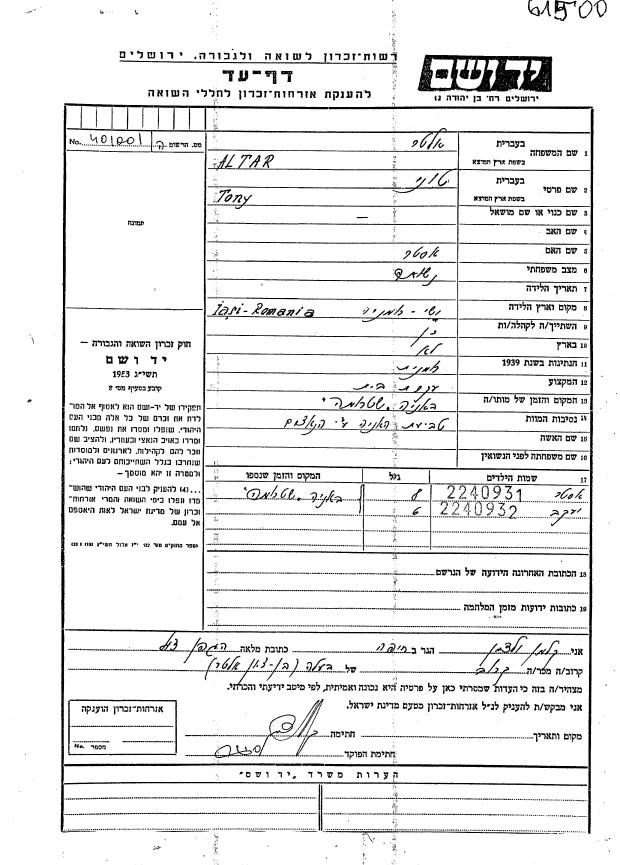 61500
רשות-זכרון לשואה ולגבורה, ירושלים
דף-עד
להענקת אזרחות-זכרון לחללי השואה
יד ושם
ירושלים רח' בן יהודה 12
מס. הרשום ה 401001 No.
תמונה
1 שם המשפחה בעברית אלטר
בשפת ארץ המוצא ALTAR
2 שם פרטי בעברית טוני
בשפת ארץ המוצא Tony
3 שם כנוי או שם מושאל —
4 שם האב
5 שם האם אסתר
6 מצב משפחתי נשואה
7 תאריך הלידה
8 מקום וארץ הלידה יסי - רומניה Iași-Romania
9 השתייך/ה לקהלה/ות כן
10 בארץ לא
11 הנתינות בשנת 1939 רומנית
12 המקצוע עקרת בית
13 המקום והזמן של מותו/ה באניה "שטרומה"
14 נסיבות המוות טביעת האניה ע"י הנאצים
15 שם האשה
16 שם משפחתה לפני הנשואין
17 שמות הילדים גיל המקום והזמן שנספו
אסתר 2240931 8 באניה "שטרומה"
יעקב 2240932 6
18 הכתובת האחרונה הידועה של הנרשם
19 כתובות ידועות מזמן המלחמה
חוק זכרון השואה והגבורה —
יד ושם
תשי"ג 1953
קובע בסעיף מס' 2
תפקידו של יד-ושם הוא לאסוף אל המו-
לדת את זכרם של כל אלה מבני העם
היהודי, שנפלו ומסרו את נפשם, נלחמו
ומרדו באויב הנאצי ובעוזריו, ולהציב שם
וזכר להם, לקהילות, לארגונים ולמוסדות
שנחרבו בגלל השתייכותם לעם היהודי;
ולמטרה זו יהא מוסמך—
...(4) להעניק לבני העם היהודי שהוש-
מדו ונפלו בימי השואה והמרי אזרחות-
זכרון של מדינת ישראל לאות היאספם
אל עמם.
אני הגר ב חיפה כתובת מלאה הגפן
קרוב/ה מכר/ה קרוב של בעלה (בן-ציון אלטר)
מצהיר/ה בזה כי העדות שמסרתי כאן על פרטיה היא נכונה ואמיתית, לפי מיטב ידיעתי והכרתי.
אני מבקש/ת להעניק לנ"ל אזרחות-זכרון מטעם מדינת ישראל.
מקום ותאריך חתימה
חתימת הפוקד
אזרחות-זכרון הוענקה
מספר No.
הערות משרד "יד ושם"